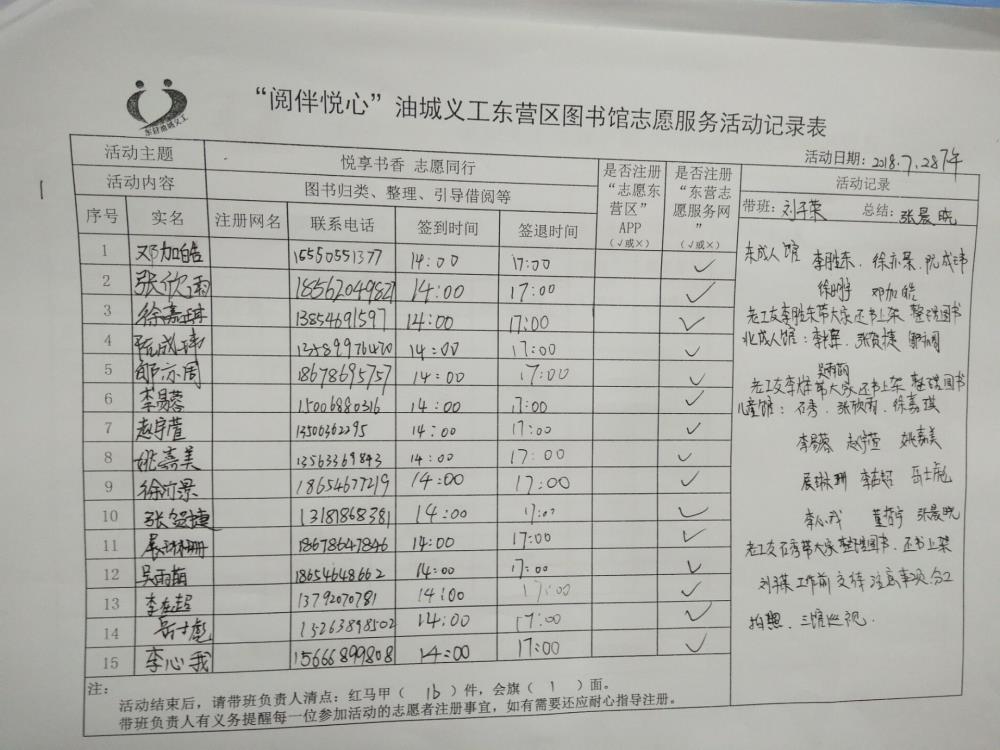 东营油城义工
“阅伴悦心”油城义工东营区图书馆志愿服务活动记录表
活动日期：2018.7.28下午
活动主题 悦享书香 志愿同行 是否注册“志愿东营区”APP（√或×） 是否注册“东营志愿服务网”（√或×） 活动记录
活动内容 图书归类、整理、引导借阅等
带班：刘子琪 总结：张晨晓
序号 实名 注册网名 联系电话 签到时间 签退时间
1 邓加皓 15550551377 14:00 17:00 √
2 张欣雨 18562049827 14:00 17:00 √
3 徐嘉琪 13854691597 14:00 17:00 √
4 阮成玮 13589976470 14:00 17:00 √
5 郇亦周 18678695757 14:00 17:00 √
6 李易蓉 15006880316 14:00 17:00 √
7 赵宇萱 13500362295 14:00 17:00 √
8 姚嘉美 13563369843 14:00 17:00 √
9 徐亦景 18654677219 14:00 17:00 √
10 张贺捷 13181868381 14:00 17:00 √
11 展琳珊 18678647846 14:00 17:00 √
12 吴雨萌 18654648662 14:00 17:00 √
13 李孟超 13792070781 14:00 17:00 √
14 岳士彪 15263898502 14:00 17:00 √
15 李心我 15666899808 14:00 17:00 √
东成人馆 李胜东、徐亦景、阮成玮
邓加皓
老义工李胜东带大家还书上架 整理图书
北成人馆：张贺捷 郇亦周
吴雨萌
老义工带大家还书上架 整理图书
儿童馆：石秀、张欣雨、徐嘉琪
李易蓉 赵宇萱 姚嘉美
展琳珊 李孟超 岳士彪
李心我 董哲宁 张晨晓
老义工石秀带大家整理图书、还书上架
刘子琪 工作前交待注意事项、合工
拍照、三馆巡视.
注：
活动结束后，请带班负责人清点：红马甲（ 16 ）件，会旗（ 1 ）面。
带班负责人有义务提醒每一位参加活动的志愿者注册事宜，如有需要还应耐心指导注册。